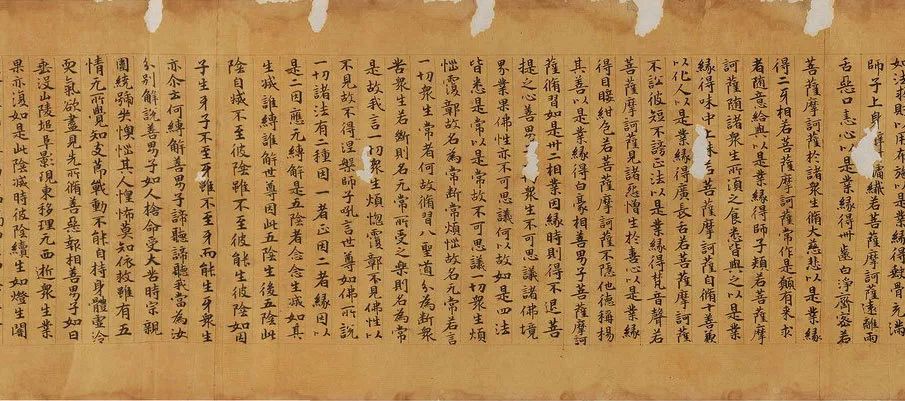 如法求財以用布施以是業緣得骨充滿
師子上身臂肘𦟛纖若菩薩摩訶薩遠離兩
舌惡口恚心以是業緣得卌齒白淨齊密若
菩薩摩訶薩於諸眾生脩大慈悲以是業緣
得二牙相若菩薩摩訶薩常作是願有來求
者隨意給與以是業緣得師子頰若菩薩摩
訶薩隨諸眾生所須之食悉皆與之以是業
緣得味中上味若菩薩摩訶薩自脩十善兼
以化人以是業緣得廣長舌若菩薩摩訶薩
不訟彼短不謗正法以是業緣得梵音聲若
菩薩摩訶薩見諸惡憎生於善心以是業緣
得目睫紺色若菩薩摩訶薩不隱他德稱揚
其善以是業緣得白豪相善男子若菩薩摩訶
薩脩習如是卅二相業因緣時則得不退菩
提之心善男眾生不可思議諸佛境
界業果佛性亦不可思議何以故如是四法
皆悉是常以是常故不可思議一切眾生煩
惱覆鄣故名為常斷常煩惱故名无常若言
一切眾生常者何故脩習八聖道分為斷眾
苦眾生若斷則名无常所受之樂則名為常
是故我言一切眾生煩惱覆鄣不見佛性以
不見故不得涅槃師子吼言世尊如佛所說
一切諸法有二種因一者正因二者緣因以
是二因應无縛解是五陰者念念生滅如其
生滅誰縛誰解世尊因此五陰生後五陰此
陰自滅不至彼陰雖不至彼能生彼陰如因
子生牙子不至牙雖不至牙而能生牙眾生
亦尒云何縛解善男子諦聽諦聽我當為汝
分別解說善男子如人捨命受大苦時宗親
圍繞號哭懊惱其人惶怖莫知依救雖有五
情无所覺知支節戰動不能自持身體虛冷
煖氣欲盡見先所脩善惡報相善男子如日
垂沒山陵堆阜影現東移理无西逝眾生業
果亦復如是此陰滅時彼陰續生如燈生闇